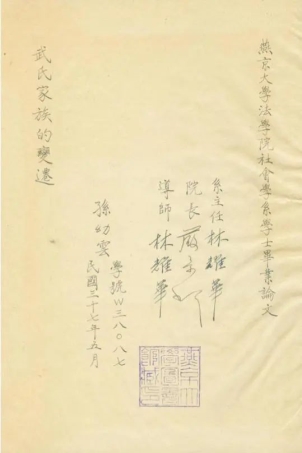 燕京大學法學院社會學系學士畢業論文
系主任 林耀華
院長
導師 林耀華
武氏家族的變遷
孫幼雲
學號W三八〇八七
民國三十七年五月